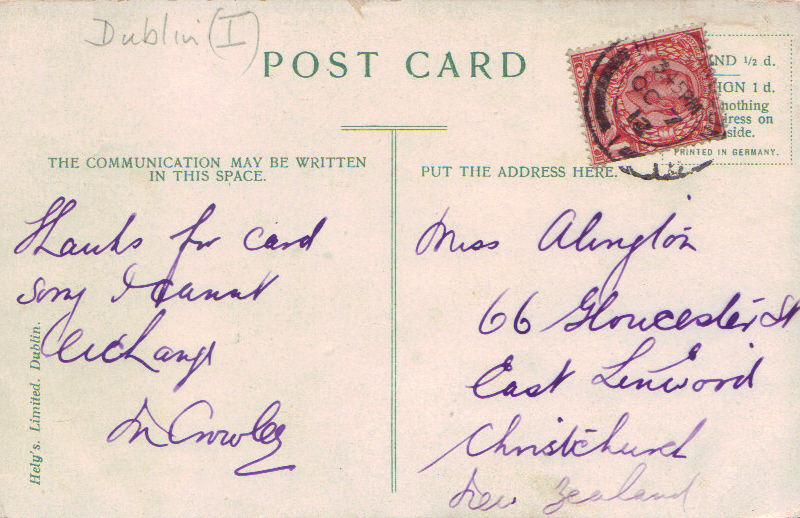 Dublin (I)
POST CARD
ND 1/2 d.
IGN 1 d.
nothing
dress on
side.
PRINTED IN GERMANY.
5.45 PM
OC 7
12
THE COMMUNICATION MAY BE WRITTEN
IN THIS SPACE.
PUT THE ADDRESS HERE.
Thanks for card
sorry I cannot
exchange
M Crowley
Miss Alington
66 Gloucester St
East Linwood
Christchurch
New Zealand
Hely's. Limited. Dublin.